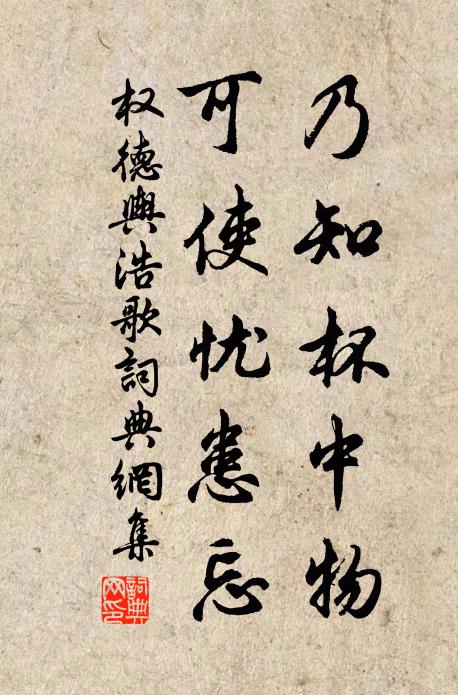 乃知杯中物
可使忧患忘
权德舆浩歌詞典網集
詞典
网印